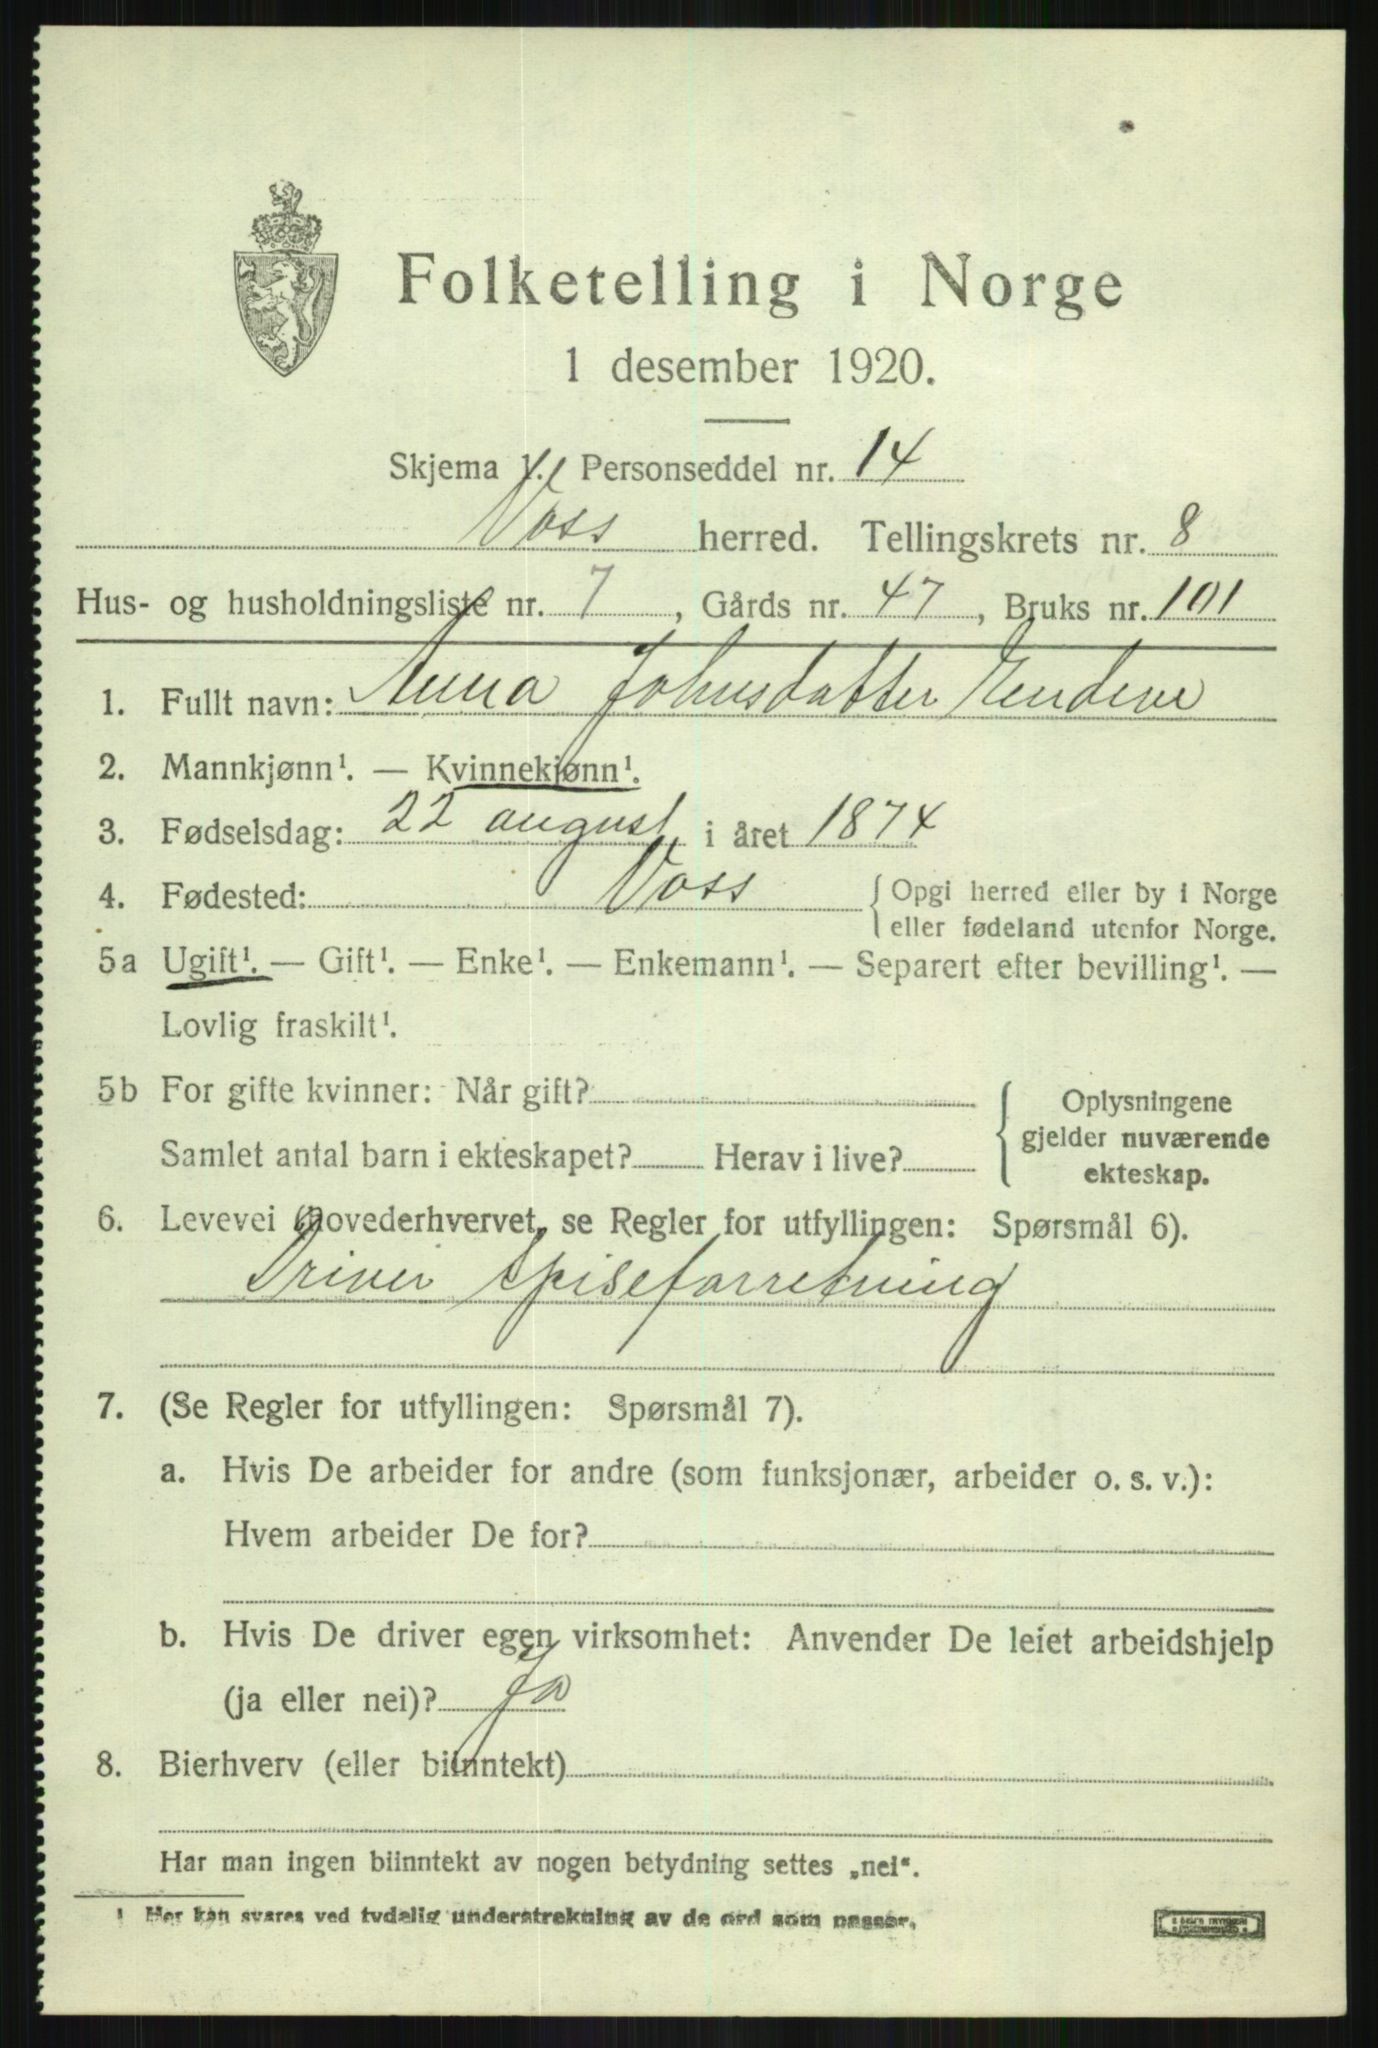 Folketelling i Norge
1 desember 1920.
Skjema 1. Personseddel nr. 14
Voss herred. Tellingskrets nr. 8
Hus- og husholdningsliste nr. 7, Gårds nr. 47, Bruks nr. 101
1. Fullt navn: Anna Johnsdatter Endeve
2. Mannkjønn¹. — Kvinnekjønn¹.
3. Fødselsdag: 22 august i året 1874
4. Fødested: Voss { Opgi herred eller by i Norge
eller fødeland utenfor Norge.
5a Ugift¹. — Gift¹. — Enke¹. — Enkemann¹. — Separert efter bevilling¹. —
Lovlig fraskilt¹.
5b For gifte kvinner: Når gift?
Samlet antal barn i ekteskapet? Herav i live?
{ Oplysningene
gjelder nuværende
ekteskap.
6. Levevei (hovederhvervet, se Regler for utfyllingen: Spørsmål 6).
Driver spiseforretning
7. (Se Regler for utfyllingen: Spørsmål 7).
a. Hvis De arbeider for andre (som funksjonær, arbeider o. s. v.):
Hvem arbeider De for?
b. Hvis De driver egen virksomhet: Anvender De leiet arbeidshjelp
(ja eller nei)? Ja
8. Bierhverv (eller biinntekt)
Har man ingen biinntekt av nogen betydning settes „nei“.
¹ Her kan svares ved tydelig understrekning av de ord som passer.